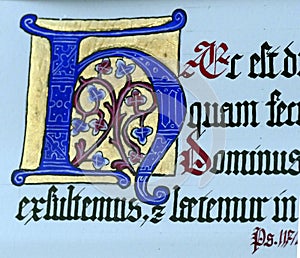 HÆc est d
quam fec
Dominus
exsultemus, & lætemur in
Ps. 117